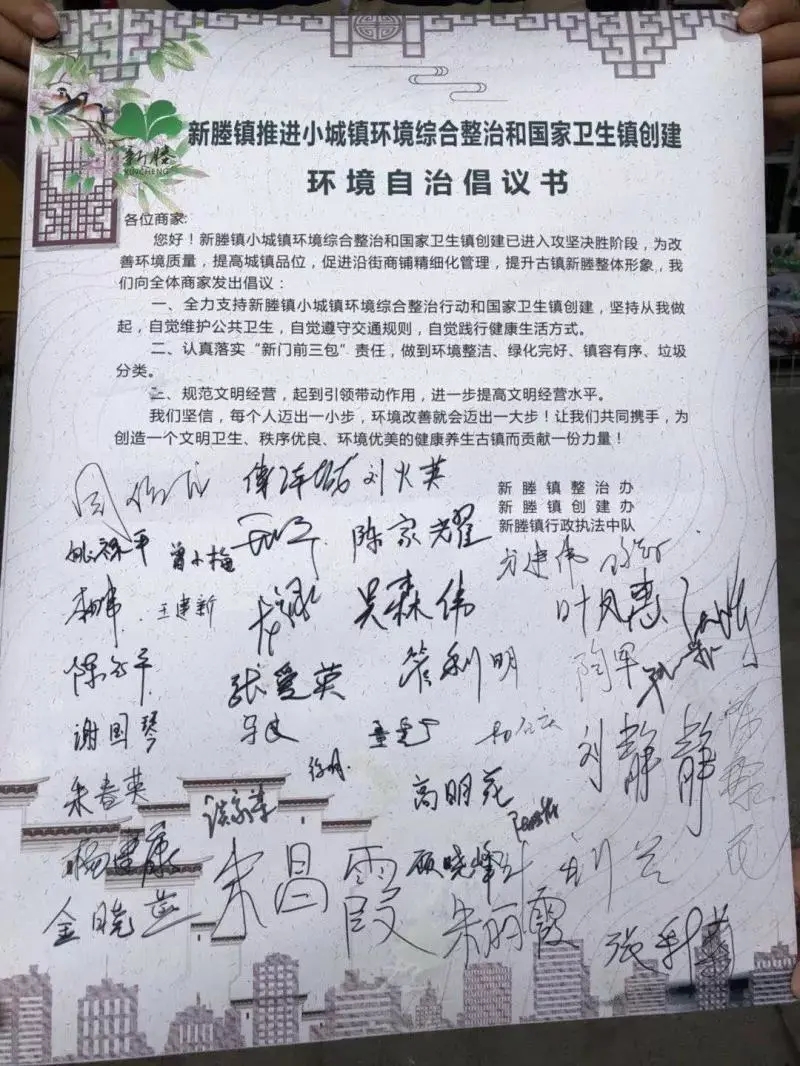 新塍
XINCHENG
新塍镇推进小城镇环境综合整治和国家卫生镇创建
环境自治倡议书
各位商家:
您好！新塍镇小城镇环境综合整治和国家卫生镇创建已进入攻坚决胜阶段，为改
善环境质量，提高城镇品位，促进沿街商铺精细化管理，提升古镇新塍整体形象，我
们向全体商家发出倡议：
一、全力支持新塍镇小城镇环境综合整治行动和国家卫生镇创建，坚持从我做
起，自觉维护公共卫生，自觉遵守交通规则，自觉践行健康生活方式。
二、认真落实“新门前三包”责任，做到环境整洁、绿化完好、镇容有序、垃圾
分类。
三、规范文明经营，起到引领带动作用，进一步提高文明经营水平。
我们坚信，每个人迈出一小步，环境改善就会迈出一大步！让我们共同携手，为
创造一个文明卫生、秩序优良、环境优美的健康养生古镇而贡献一份力量！
新塍镇整治办
新塍镇创建办
新塍镇行政执法中队
刘火英
姚禄平 曾小梅 陈家耀 方建伟
王建新 吴森伟 叶凤惠
张爱英 詹利明 陶军
谢国琴 刘静静
朱春英 高明苑
杨建康 朱昌霞 顾晓峰 刘兰
金晓燕 朱丽霞 张利